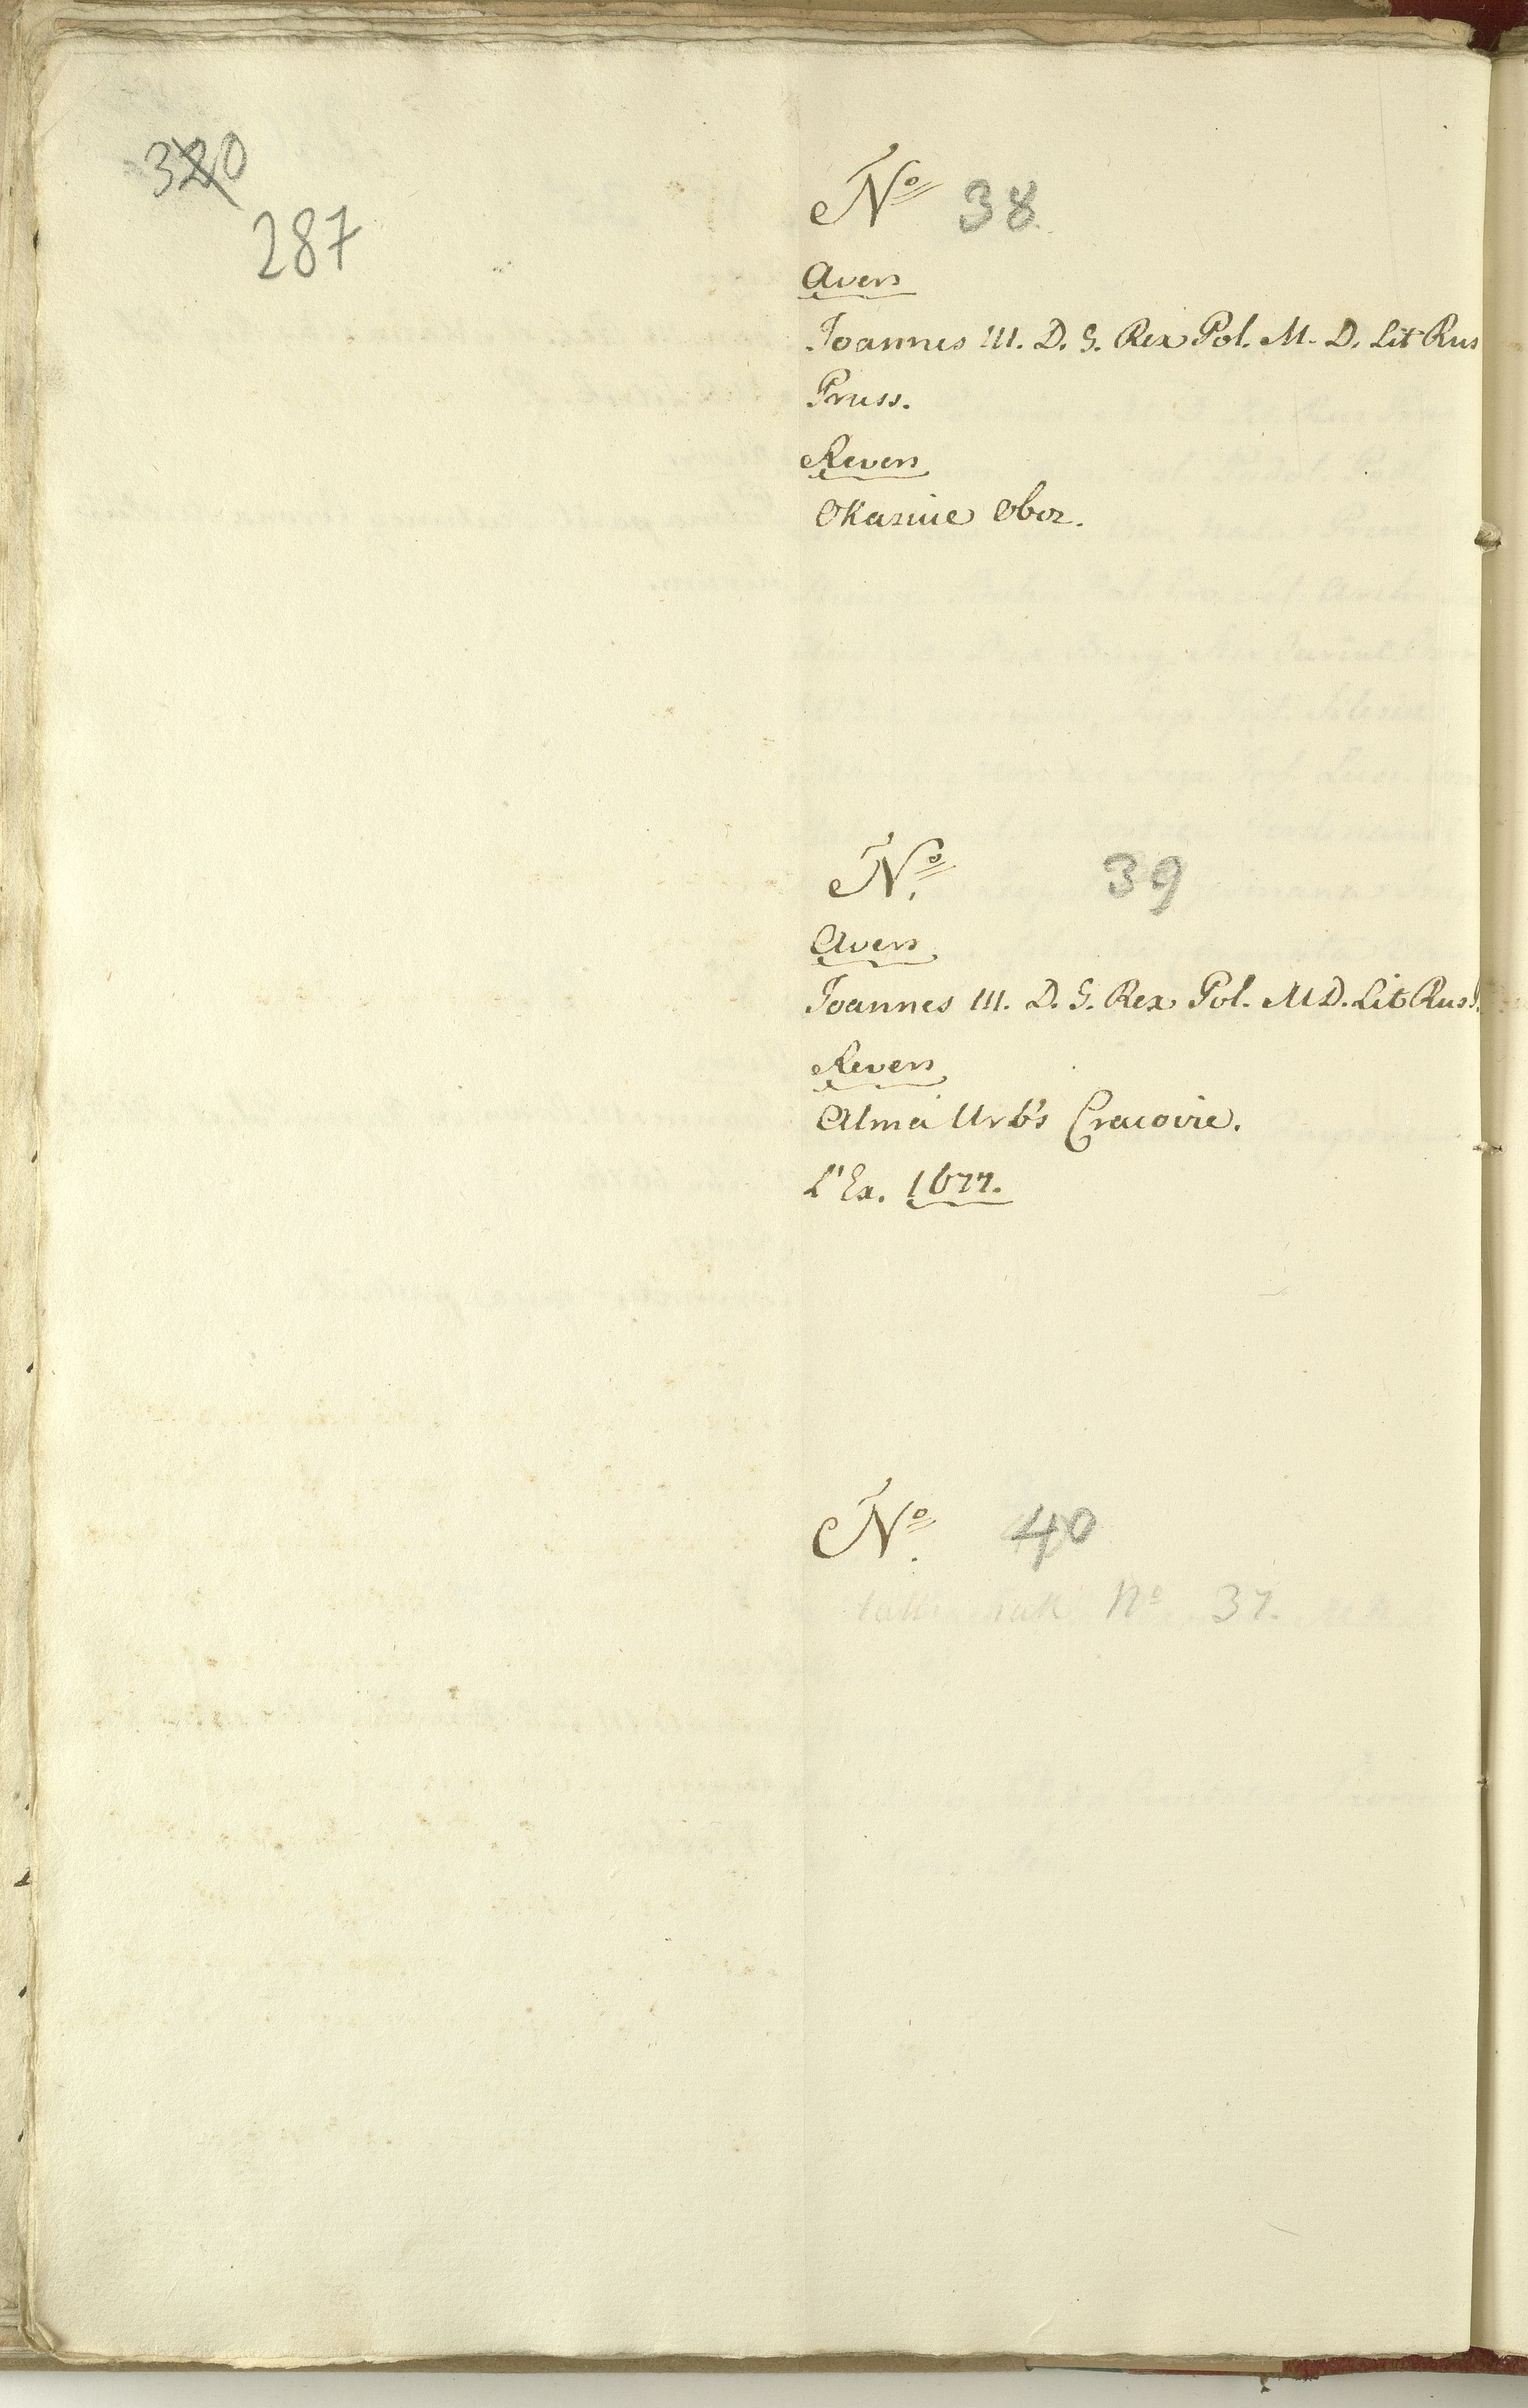 320
287
No 38.
Avers
Joannes III. D. G. Rex Pol. M. D. Lit Rus
Pruss.
Revers
Okasnie Obor.
No. 39
Avers
Joannes III. D. G. Rex Pol. M D. Lit Russ.
Revers
Alma Urbs Cracovie.
L'Ex. 1677.
No. 40
No 37.